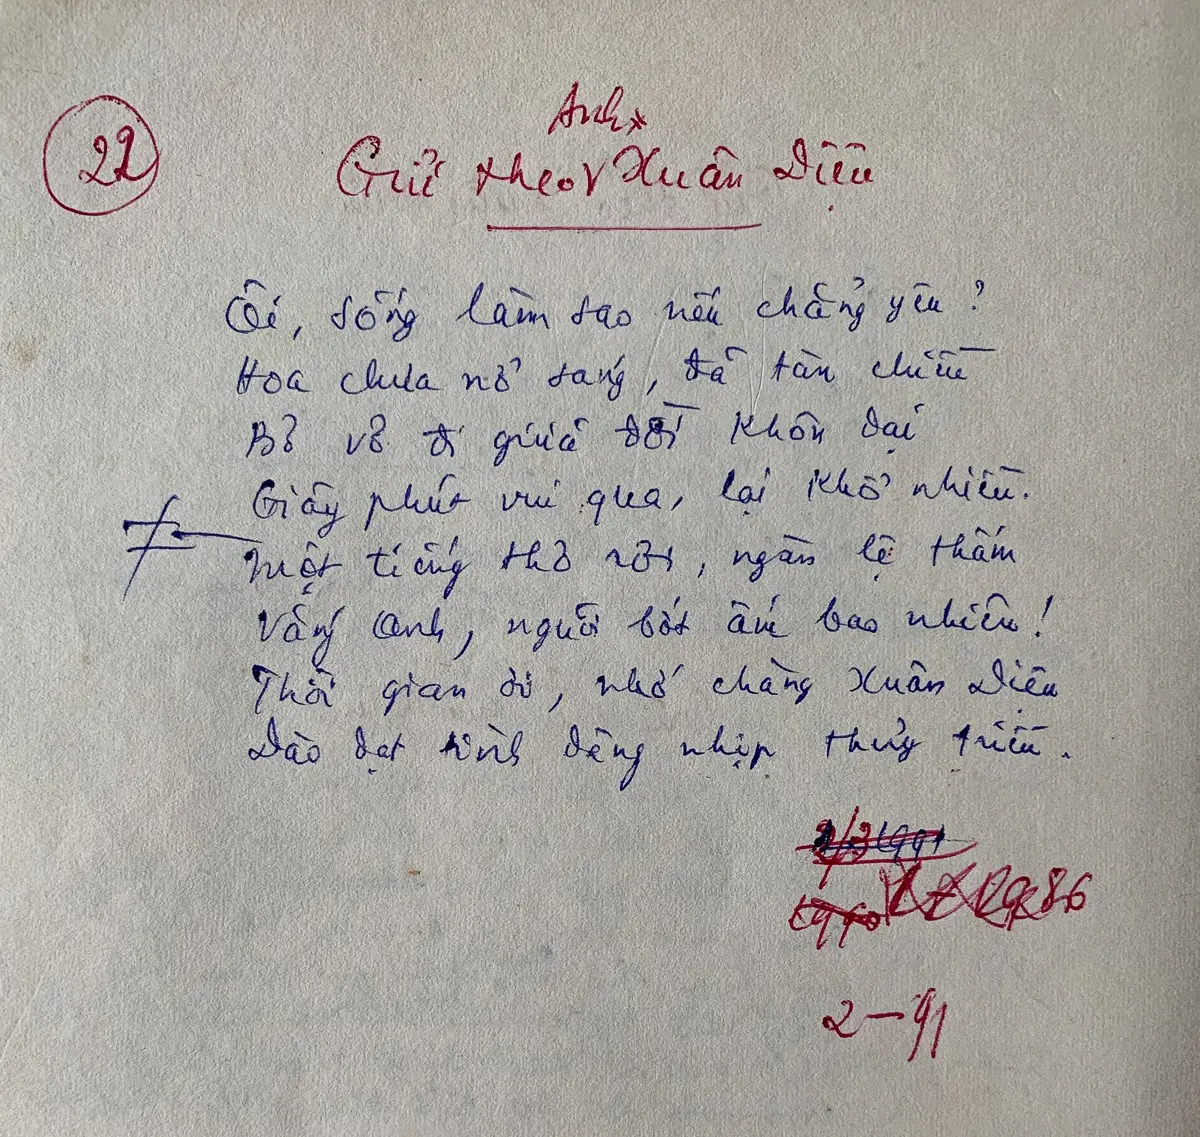 22
Anh
Gửi theo Xuân Diệu
Ôi, sống làm sao nếu chẳng yêu?
Hoa chưa nở sáng, đã tàn chiều
Bơ vơ đi giữa đời khôn dại
Giây phút vui qua, lại khổ nhiều.
Một tiếng thơ rơi, ngàn lệ thấm
Vắng anh, người bớt ấm bao nhiêu!
Thời gian ơi, nhớ chàng Xuân Diệu
Dào dạt tình dâng nhịp thủy triều.
2-91